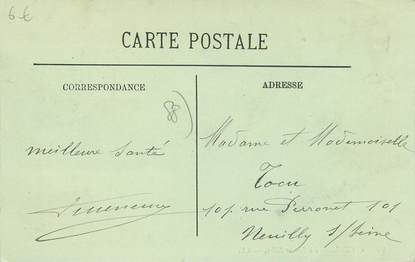 6 €
CARTE POSTALE
CORRESPONDANCE
ADRESSE
88
meilleure santé
Madame et Mademoiselle
101. rue Perronet 101
Neuilly s/Seine